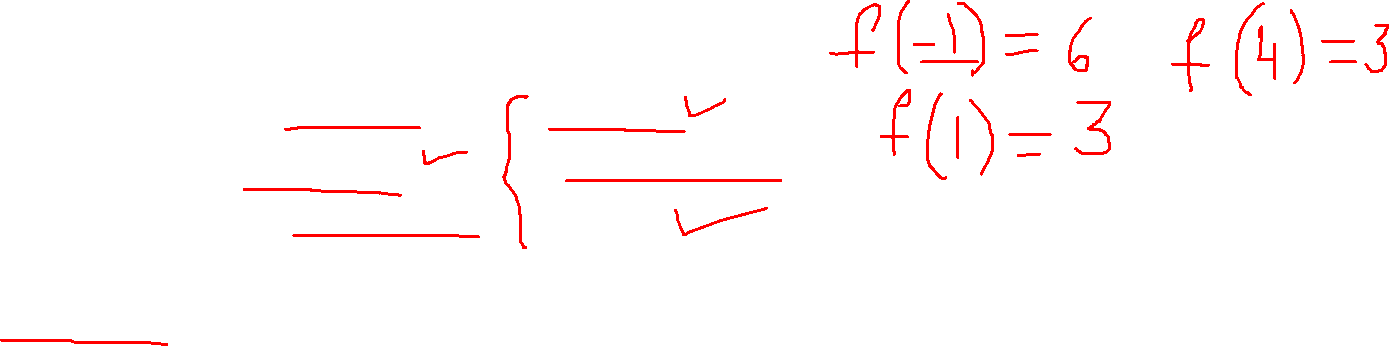 f(-1) = 6 f(4) = 3
f(1) = 3